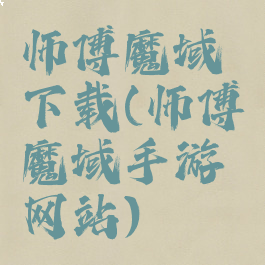 师傅魔域
下载(师傅
魔域手游
网站)